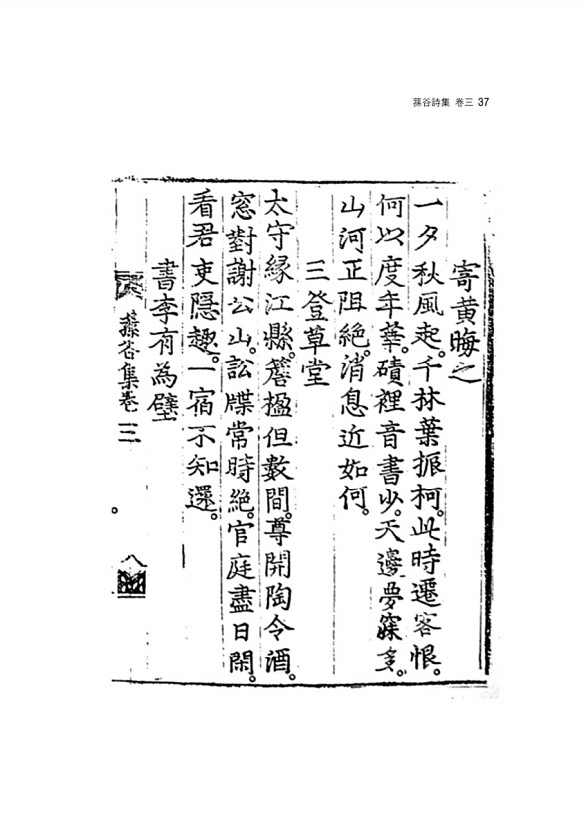 蓀谷詩集 卷三 37
寄黄晦之
一夕秋風起。千林葉振柯。此時遷客恨。
何以度年華。磧裡音書少。天邊夢寐多。
山河正阻絶。消息近如何。
三登草堂
太守緣江縣。簷楹但數間。尊開陶令酒。
窓對謝公山。訟牒常時絶。官庭盡日閑。
看君吏隱趣。一宿不知還。
書李有為壁
蓀谷集卷三
八